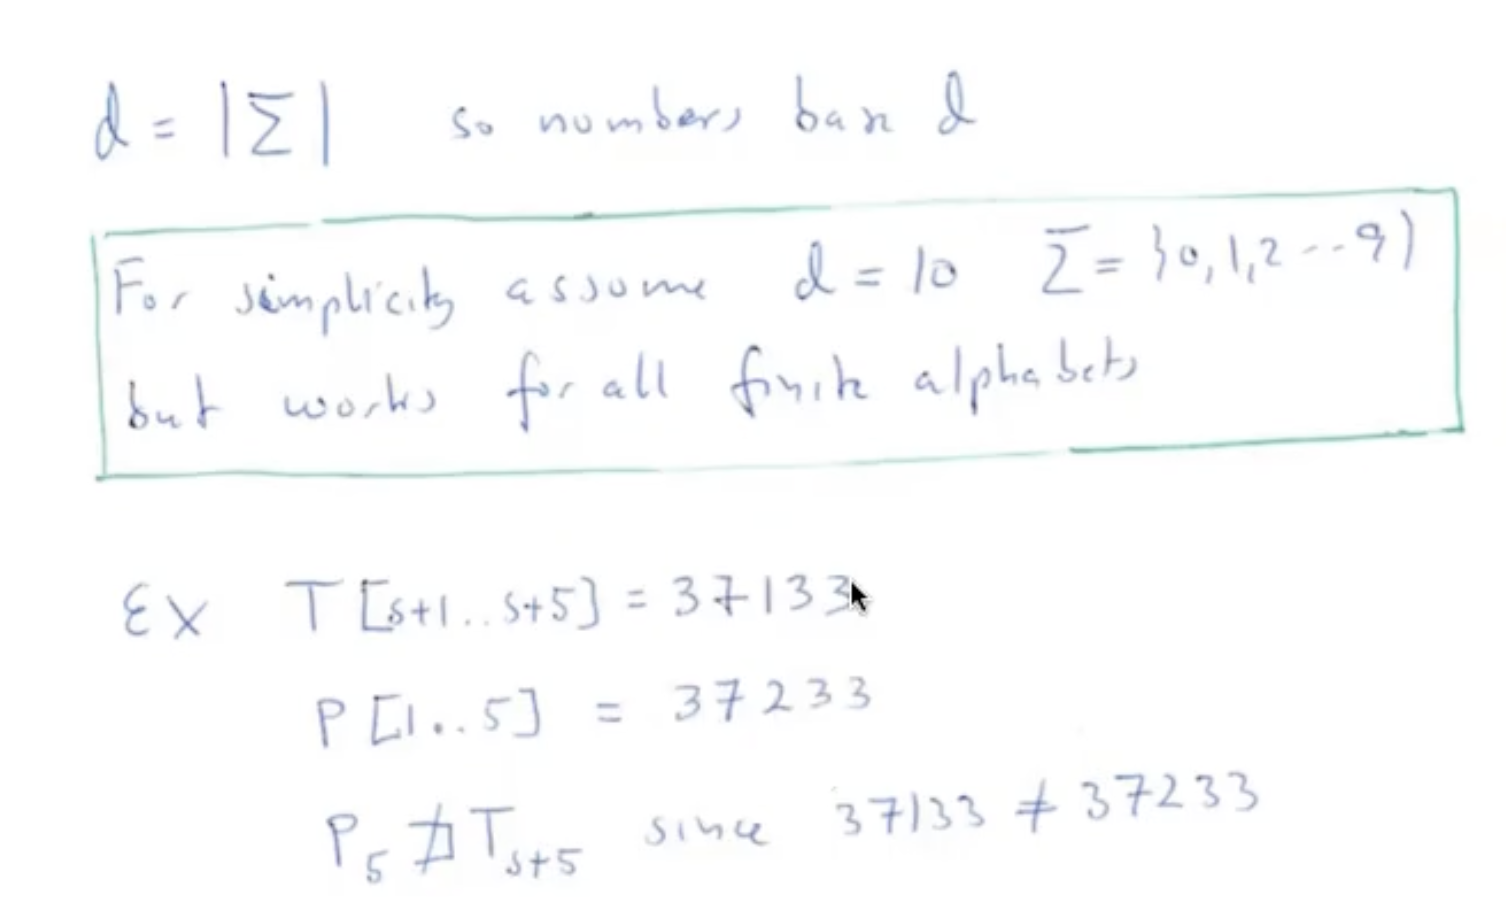 d = |Σ| so numbers base d
For simplicity assume d = 10 Σ = {0,1,2--9}
but works for all finite alphabets
Ex T[s+1..s+5] = 37133
P[1..5] = 37233
P₅ ⋣ Tₛ₊₅ since 37133 ≠ 37233